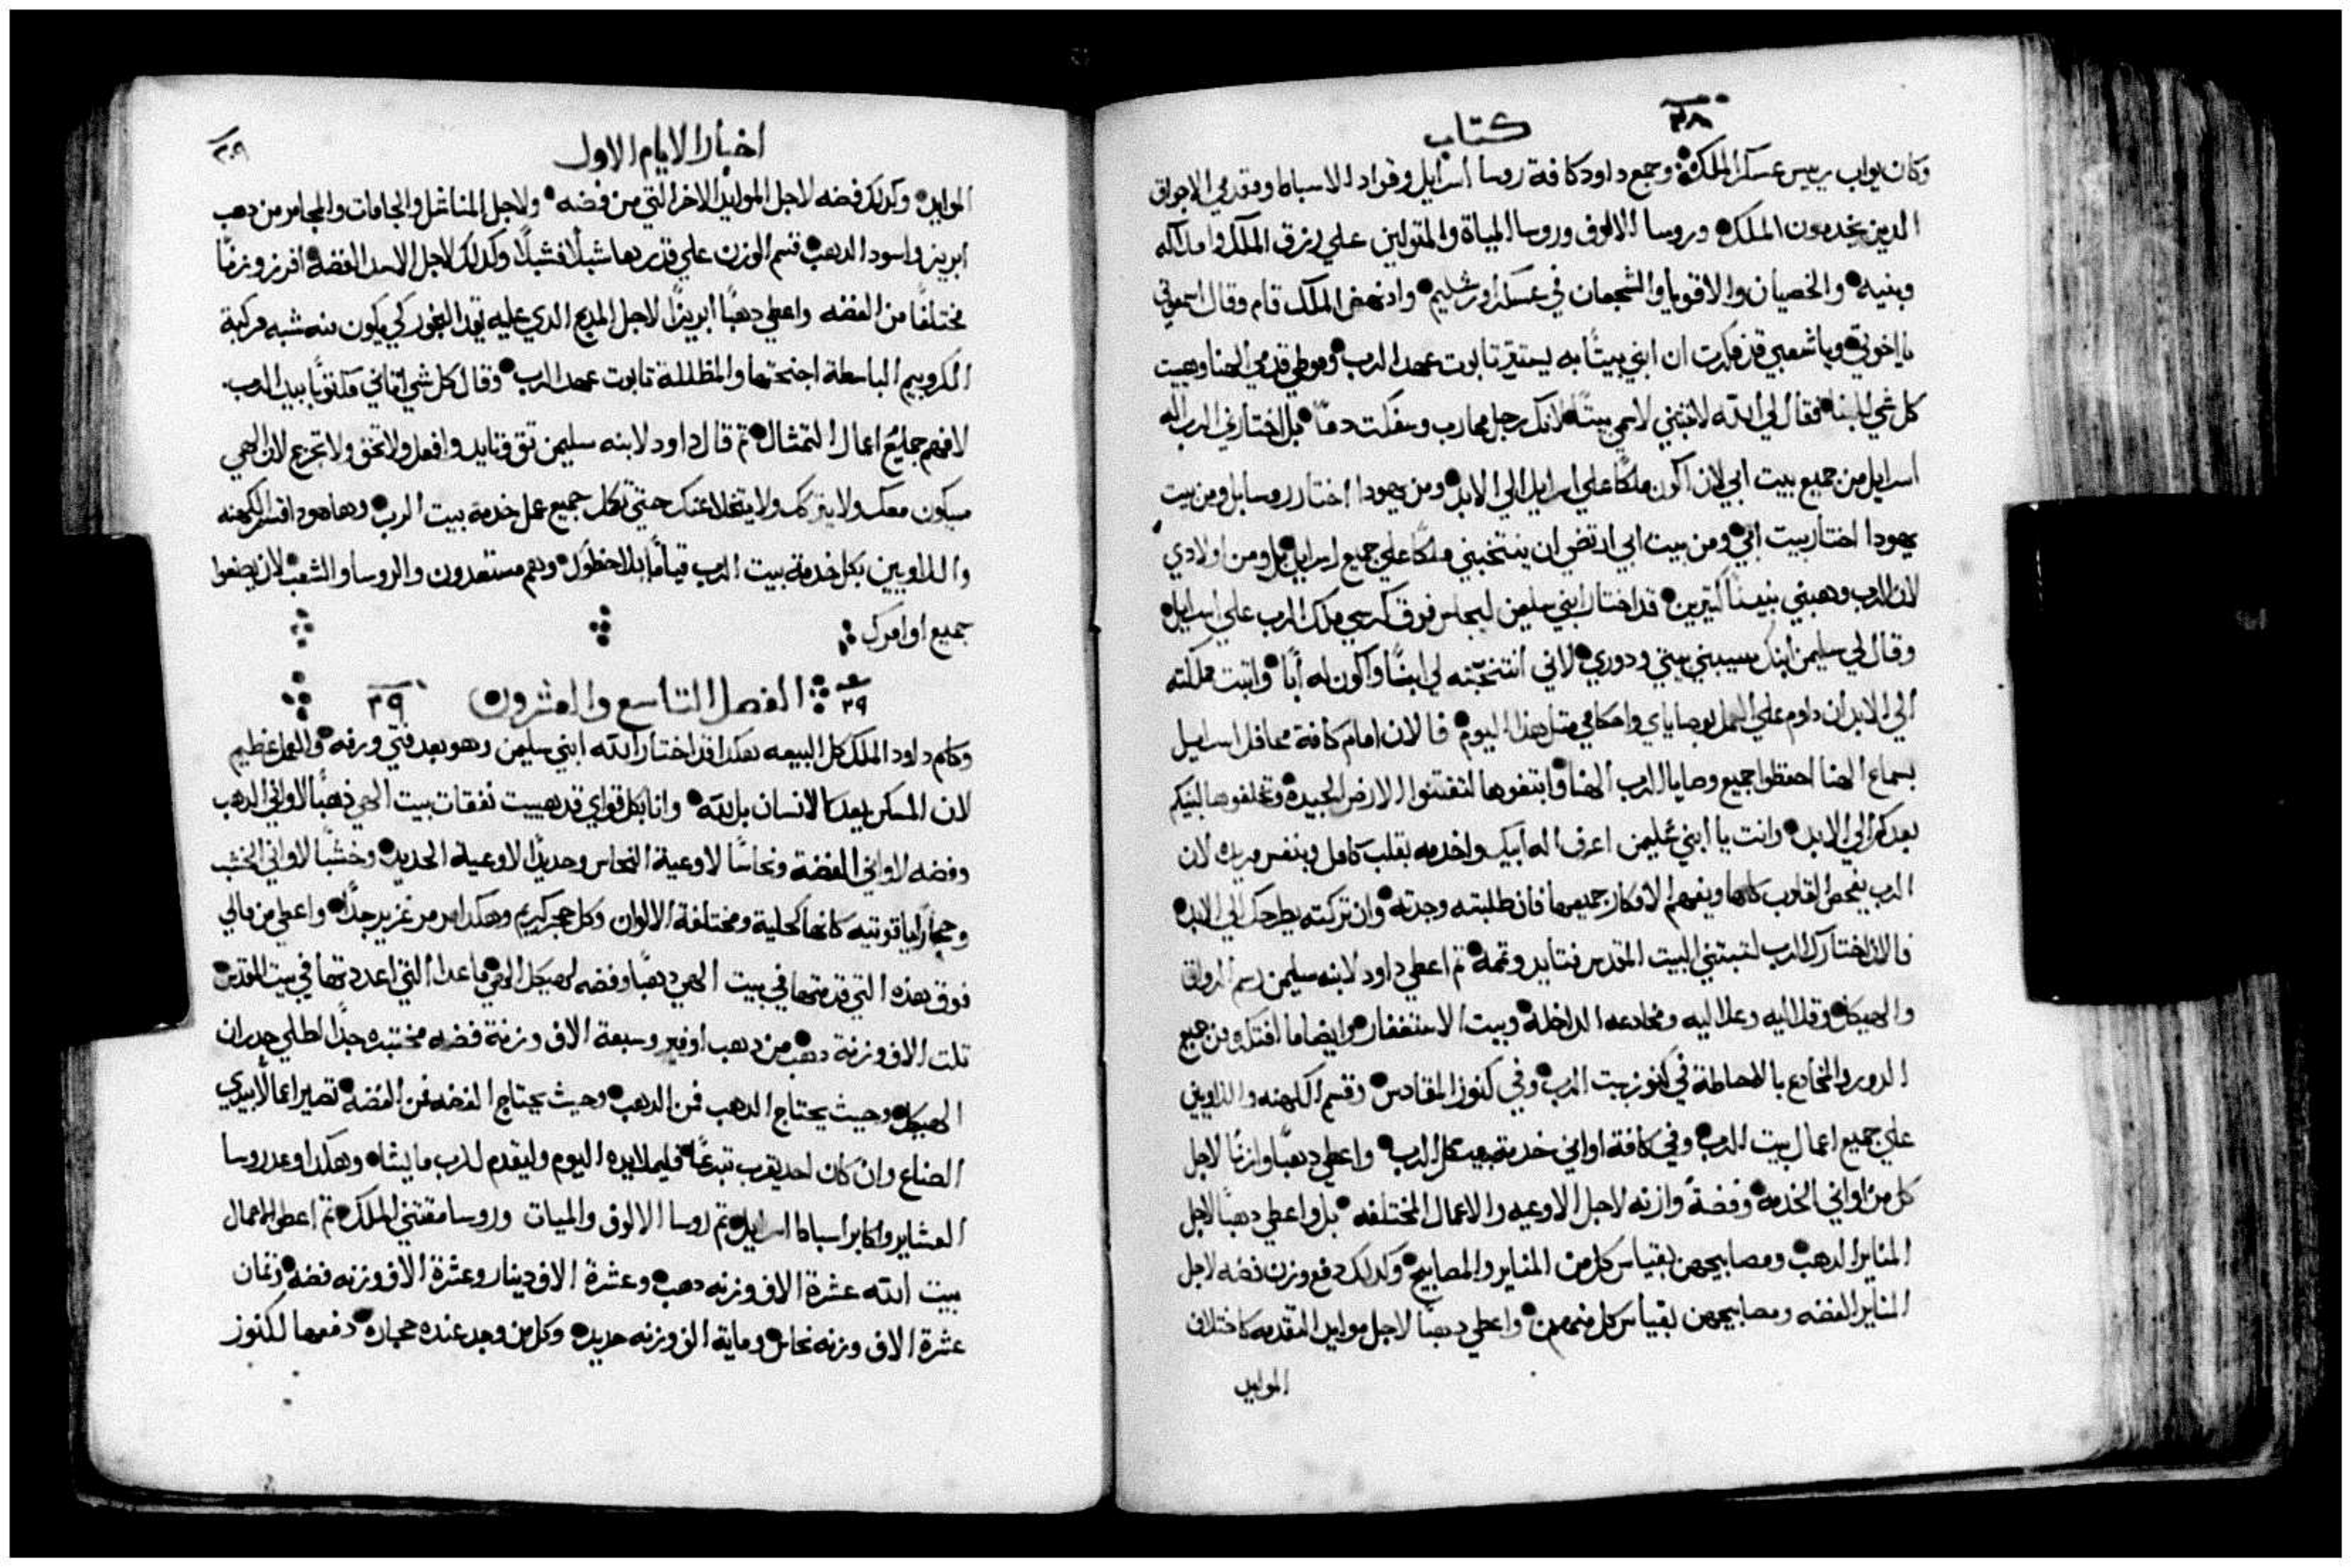 كتاب
٣٠٨
وكان يواب رييس عسكر الملك وجمع داود كافة روسا اسراييل وقواد الاسباط ومقدمي الاجواق
الدين يخدمون الملك وروسا الالوف وروسا المياة والمتولين علي رزق الملك واملاكه
وبنيه والخصيان والاقويا والشجعان في عسكر اورشليم واد نهض الملك قام وقال اسمعوني
يا اخوتي ويا شعبي قد فكرت ان ابني بيتًا به يستقر تابوت عهد الرب وموطي قدمي الهنا وهييت
كل شي للبنا فقال لي الله لا تبني لاسمي بيتًا لانك رجل محارب وسفكت دمًا بل اختارني الرب اله
اسراييل من جميع بيت ابي لان اكون ملكًا علي اسراييل الي الابد ومن يهودا اختار روسا بل ومن بيت
يهودا اختار بيت ابي ومن بيت ابي ارتضي ان ينتخبني ملكًا علي جميع اسراييل بل ومن اولادي
لان الرب وهبني بنينًا كتيرين قد اختار ابني سليمن ليجلس فوق كرسي ملك الرب علي اسراييل
وقال لي سليمن ابنك سيبني بيتي ودوري لاني انتخبته لي ابنًا واكون له ابًا واتبت مملكته
الي الابد ان داوم علي العمل بوصاياي واحكامي متل هدا اليوم فالان امام كافة محافل اسراييل
بسماع الهنا احفظوا جميع وصايا الرب الهنا وابتغوها لتقتنوا الارض الجيدة وتخلفوها لبنيكم
بعدكم الي الابد وانت يا ابني سليمن اعرف اله ابيك واخدمه بقلب كامل وبنفس مريده لان
الرب يفحص القلوب كلها ويفهم الافكار جميعها فان طلبته وجدته وان تركته يطرحك الي الابد
فالان اختارك الرب لتبتني البيت المقدس فتايد وتمه تم اعطي داود لابنه سليمن رسم الرواق
والهيكل وقلاليه وعلاليه ومخادعه الداخلة وبيت الاستغفار وايضا ما افتكر من جميع
الدور والمخادع بالاحاطة في كنوز بيت الرب وفي كنوز المقادس وقسم الكهنه واللاويين
علي جميع اعمال بيت الرب وفي كافة اواني خدمة بيت الرب واعطي دهبًا وازنًا لاجل
كل من اواني الخدمه وفضةً وازنه لاجل الاوعيه والاعمال المختلفه بل واعطي دهبًا لاجل
المناير الدهب ومصابيحهن بقياس كل من المناير والمصابيح وكدلك دفع وزن فضه لاجل
المناير الفضه ومصابيحهن بقياس كل منهن واعطي دهبًا لاجل موايد التقدمه كاختلاف
الموايد
اخبار الايام الاول
٣٠٩
الموايد وكدلك فضه لاجل الموايد الاخر التي من فضه ولاجل المناشل والجامات والمجامر من دهب
ابريز واسود الدهب قسم الوزن علي قدرها شبلًا فشبلًا وكدلك لاجل الاسد الفضه افرز وزنًا
مختلفًا من الفضه واعطي دهبًا ابريزًا لاجل المدبح الدي عليه يقد البخور كي يكون منه شبه مركبة
الكروبيم الباسطة اجنحتها والمظللة تابوت عهد الرب وقال كل شي اتاني مكتوبًا بيد الرب
لافهم جميع اعمال التمتال تم قال داود لابنه سليمن تق وتايد وافعل ولا تخف ولا تجزع لان الهي
سيكون معك ولا يتركك ولا يتخلا عنك حتي تكمل جميع عمل خدمة بيت الرب وها هود اقسام الكهنه
واللاويين بكل خدمة بيت الرب قيامًا بك
وهم مستعدون والروسا والشعب لان يصنعوا
جميع اوامرك
٢٩ الفصل التاسع والعشرون ٢٩
وكلم داود الملك كل البيعه هكدا قد اختار الله ابني سليمن وهو بعد فتي ورفه والعمل عظيم
لان المسكن ليعد لا لانسان بل لله وانا بكل قواي قد هييت نفقات بيت الهي دهبًا لاواني الدهب
وفضه لاواني الفضة ونحاسًا لاوعية النحاس وحديدًا لاوعية الحديد وخشبًا لاواني الخشب
وحجارًا ياقوتيه كانها كحلية ومختلفة الالوان وكل حجر كريم وهكدا مرمر غزير جدًا واعطي من مالي
فوق هده التي قدمتها في بيت الهي دهبًا وفضه لهيكل الهي ما عدا التي اعددتها في بيت المقدس
تلت الاف وزنة دهب من دهب اوفير وسبعة الاف وزنة فضه مختبره جدًا لطلي جدران
الهيكل وحيت يحتاج الدهب فمن الدهب وحيت يحتاج الفضه فمن الفضه تصير اعمالًا بيدي
الصناع وان كان احد يقرب تبرعًا فليملا يده اليوم وليقدم للرب ما يشاه وهكدا وعد روسا
العشاير واكابر اسباط اسراييل تم روسا الالوف والميات وروسا مقتني الملك تم اعطي لاعمال
بيت الله عشرة الاف وزنه دهب وعشرة الاف دينار وعشرة الاف وزنه فضه وتمان
عشرة الاف وزنه نحاس وماية الف وزنه حديد وكل من وجد عنده حجاره دفعها لكنوز